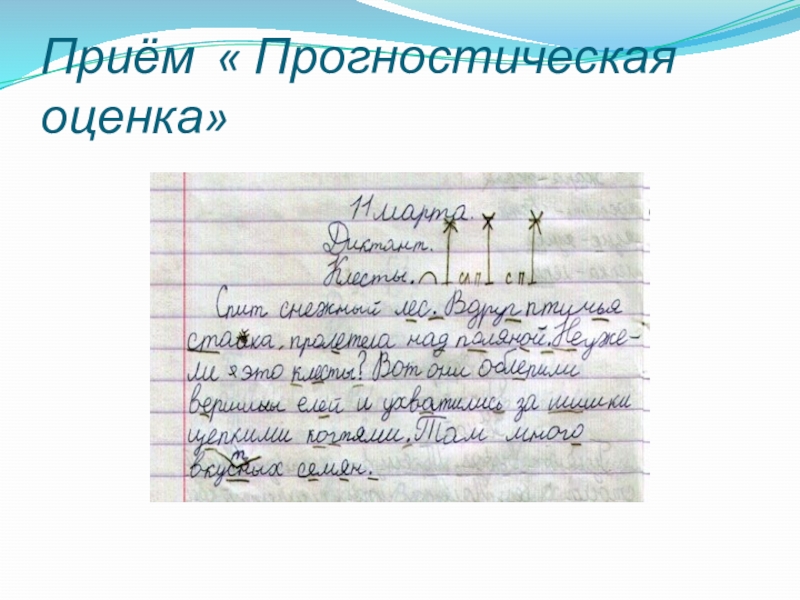 Приём « Прогностическая
оценка»
11 марта.
Диктант.
Клесты. сл п с п
Спит снежный лес. Вдруг птичья
стайка. пролетела над поляной. Неуже-
ли это клесты? Вот они облепили
вершины елей и ухватились за шишки
цепкими когтями. Там много
вкусных семян.